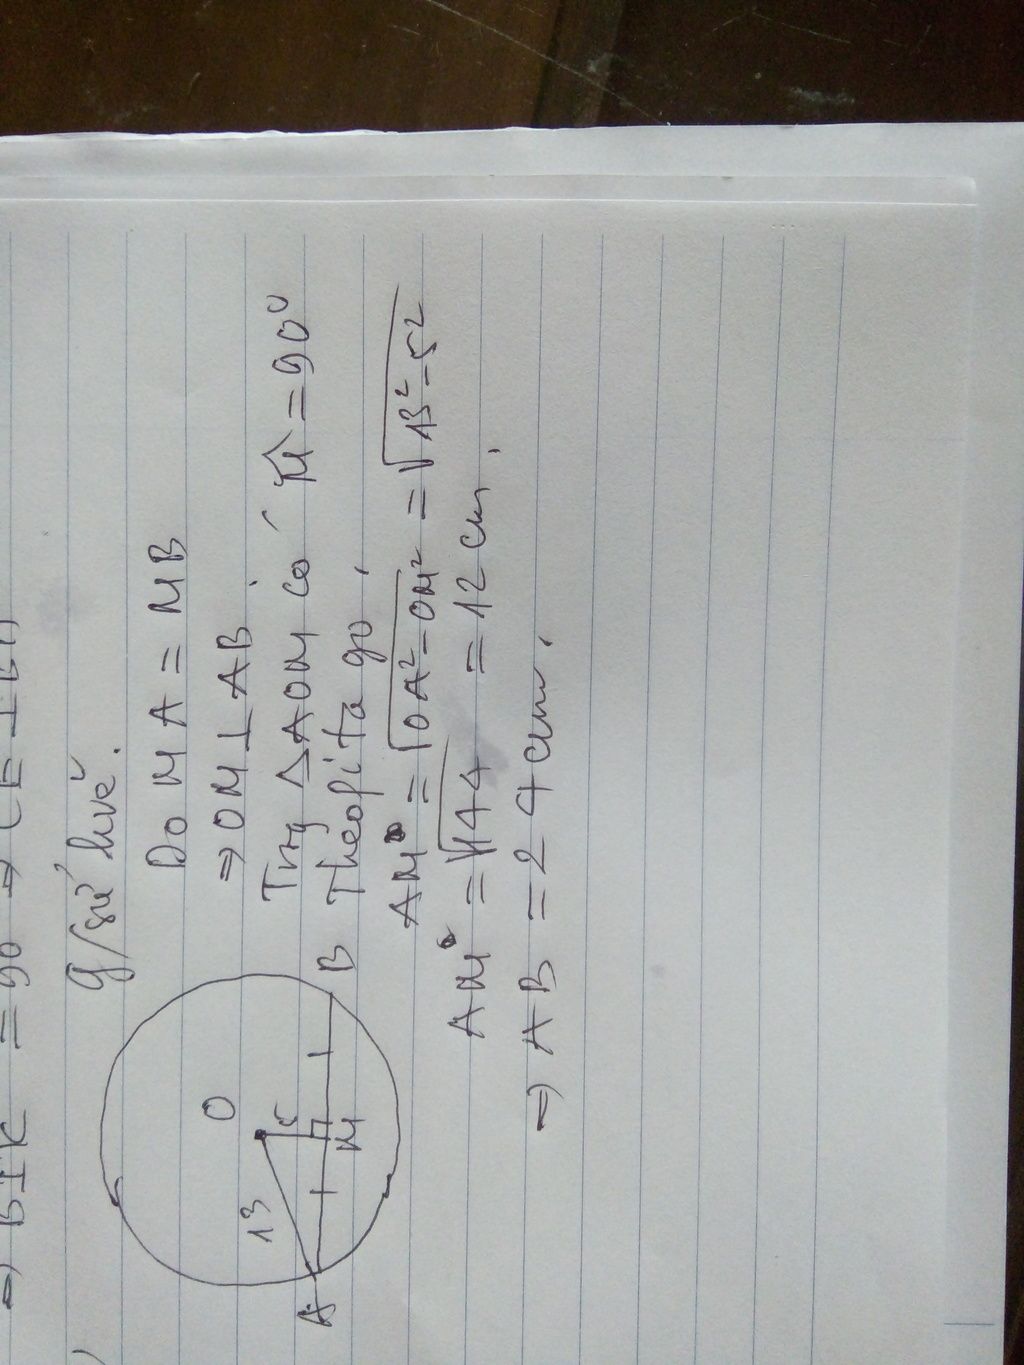 ⇒ BIK = 90 ⇒ CE ⊥ B
g/sử hvẽ.
Do MA = MB
⇒ OM ⊥ AB.
Trg ΔAOM có M̂ = 90⁰
Theo pita go,
AM = √(OA² - OM²) = √(13² - 5²)
AM = √144 = 12 cm.
⇒ AB = 24 cm.
O
13
5
A
M
B